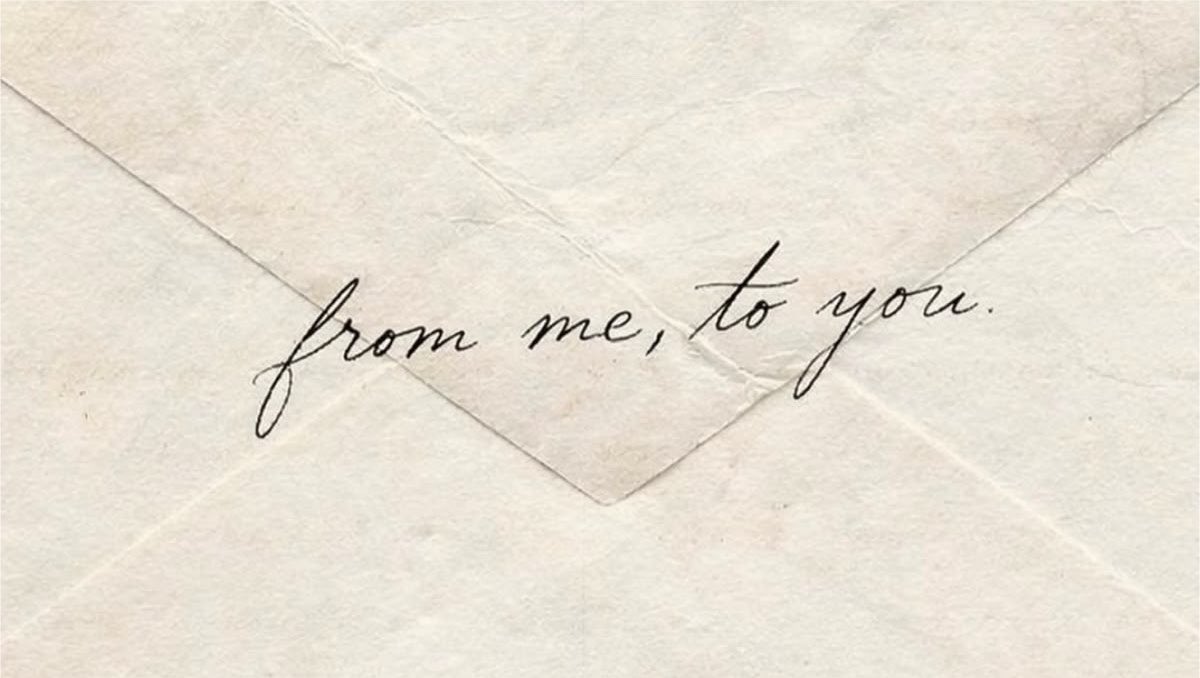 from me, to you.